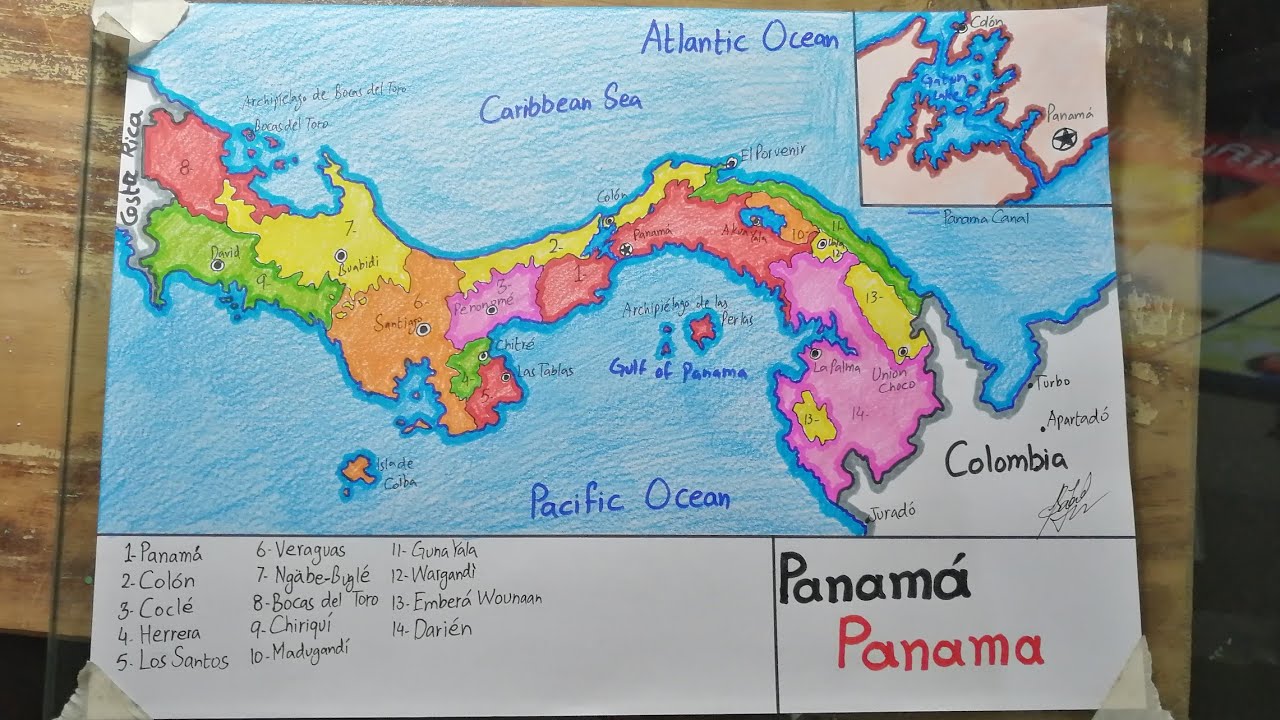 Atlantic Ocean
Caribbean Sea
Archipiélago de Bocas del Toro
Bocas del Toro
Costa Rica
8
El Porvenir
Colón
Gatun
Lake
Panamá
Panama Canal
David
9-
7-
Buabidi
Colón
2-
Panamá
1-
3-
Penonomé
6-
Santiago
Chitré
4-
Las Tablas
5-
Isla de
Coiba
Archipiélago de las
Perlas
Gulf of Panama
Akua
Yala
10-
11-
12-
13-
La Palma
Union
Choco
13-
14-
Turbo
Apartadó
Colombia
Juradó
Pacific Ocean
1- Panamá
2- Colón
3- Coclé
4- Herrera
5- Los Santos
6- Veraguas
7- Ngäbe-Buglé
8- Bocas del Toro
9- Chiriquí
10- Madugandí
11- Guna Yala
12- Wargandí
13- Emberá Wounaan
14- Darién
Panamá
Panama